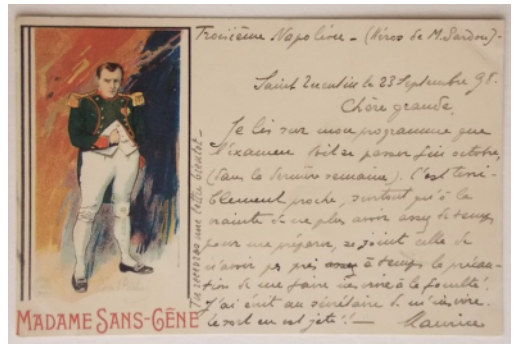 Troisième Napoléon – (Héros de M. Sardou) –
Saint Quentin le 23 Septembre 98.
Chère grande,
Je lis sur mon programme que
l'examen doit se passer fin octobre,
(dans la dernière semaine). C'est terri-
blement proche, surtout qu'à la
crainte de ne plus avoir assez de temps
pour me préparer, se joint celle de
n'avoir pas pris assez à temps la précau-
tion de me faire inscrire à la faculté.
J'ai écrit au secrétaire de m'inscrire.
Le sort en est jeté !! – Maurice
Tu recevras une lettre bientôt –
MADAME SANS-GÊNE